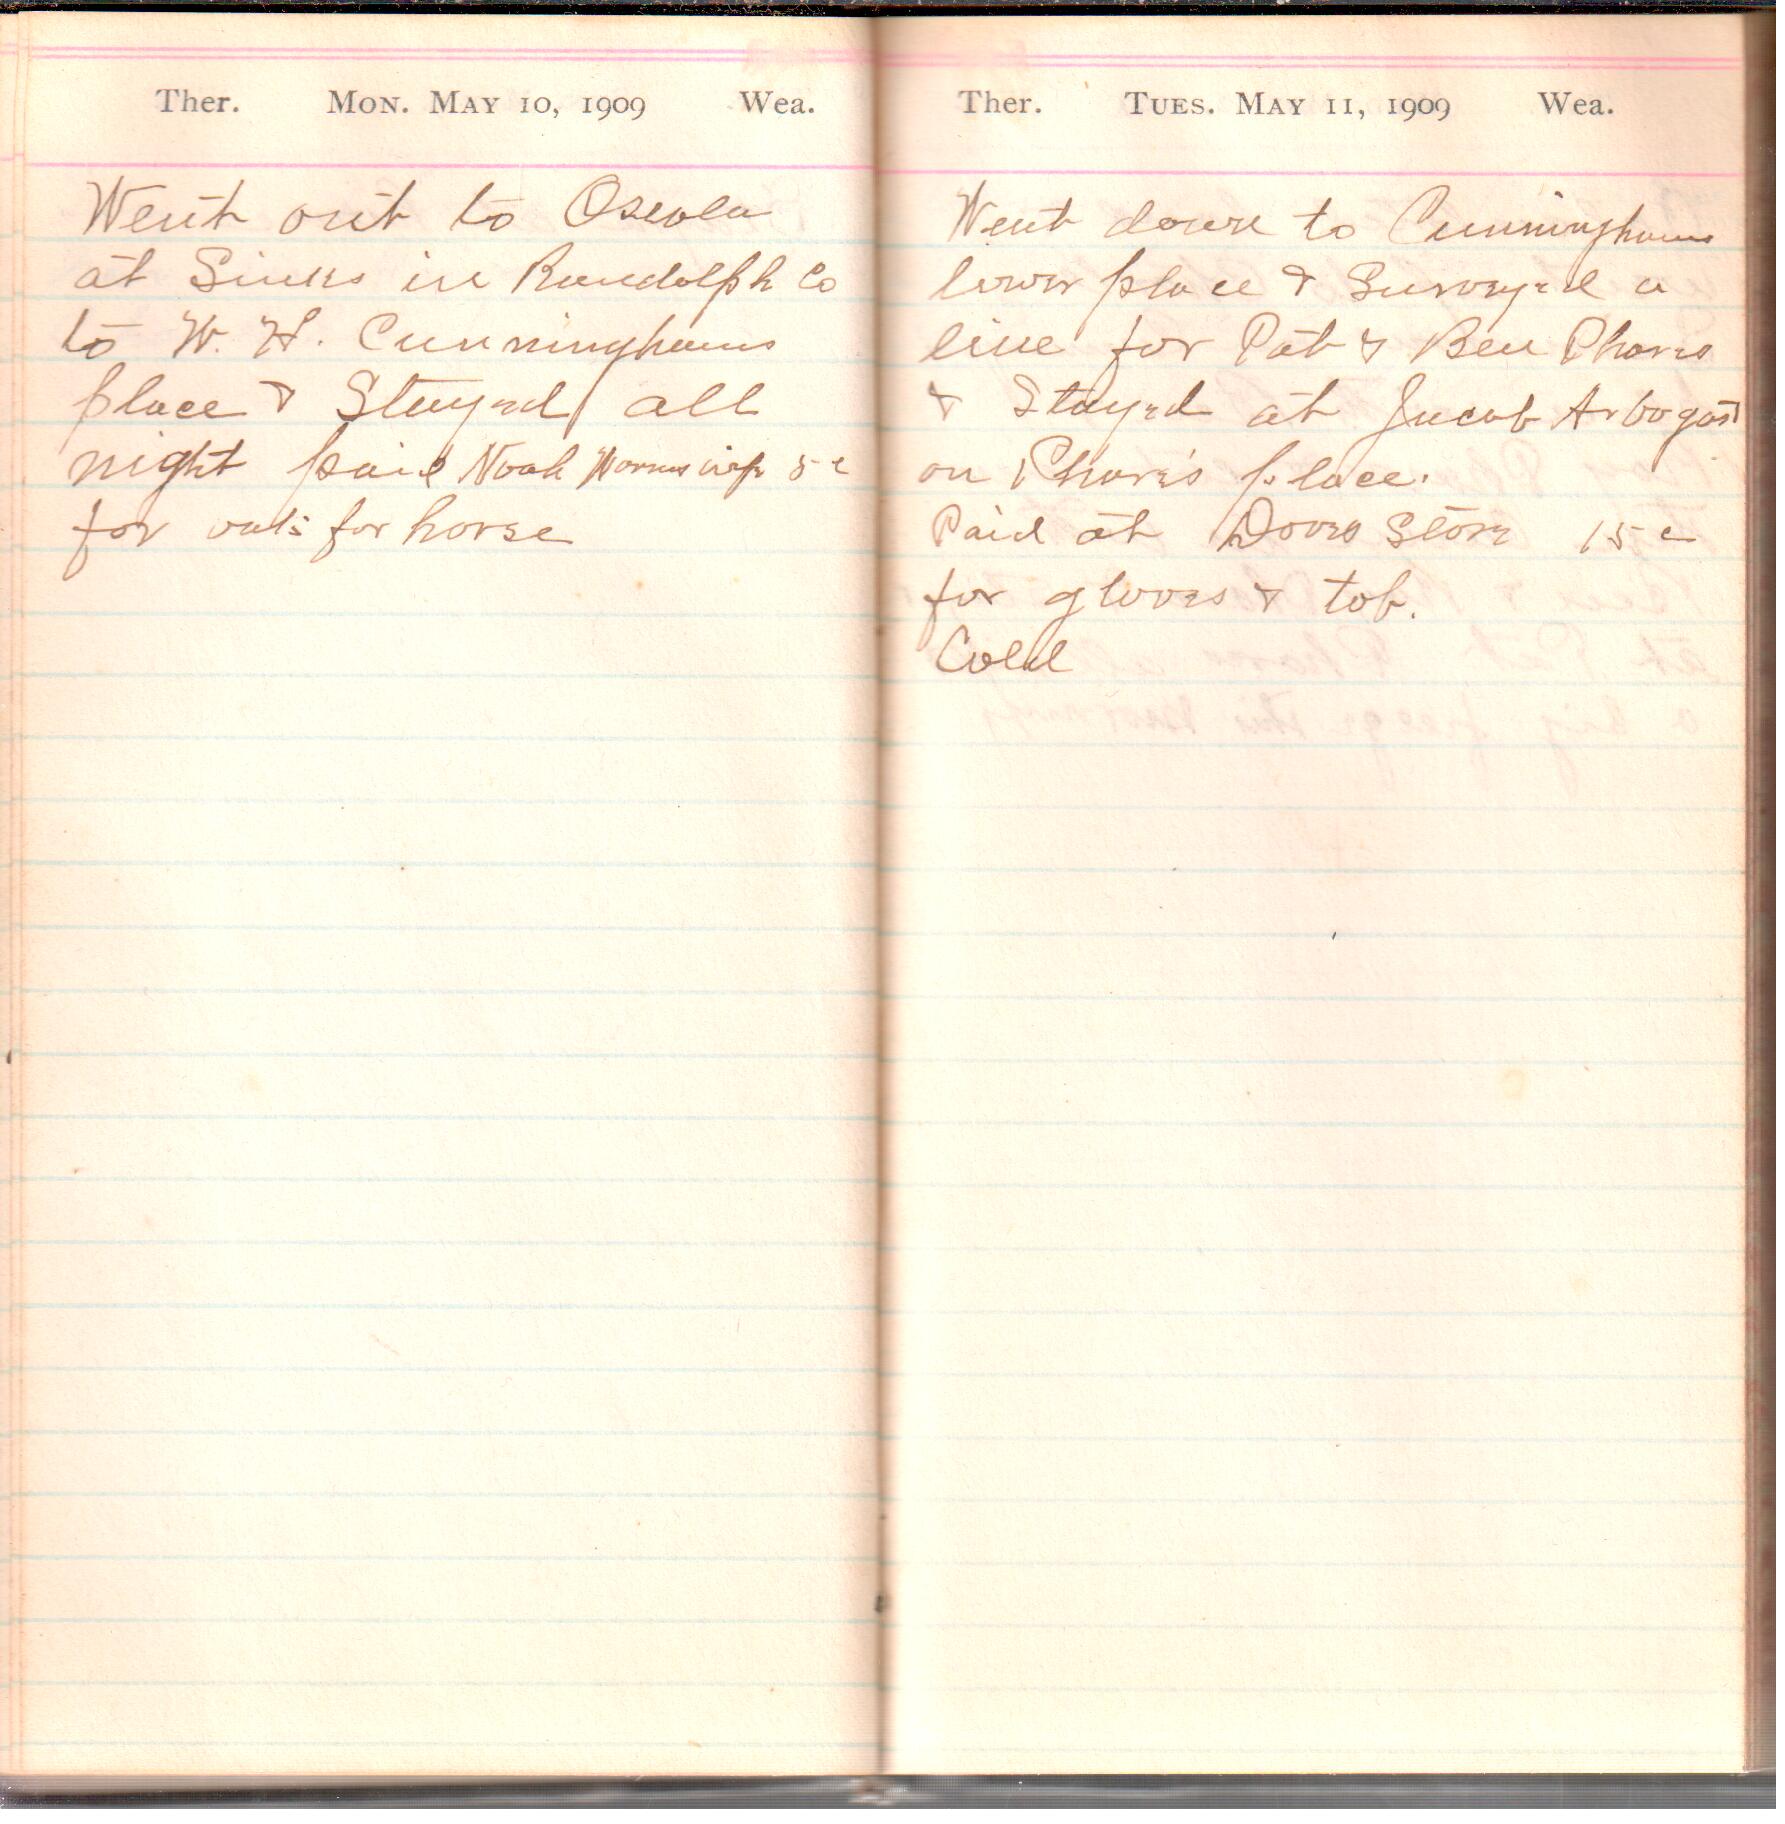 Ther. MON. MAY 10, 1909 Wea.
Went out to Oseola
at Sinks in Randolph Co
to W. H. Cunninghams
place & Stayed all
night paid Noah wife 5 c
for oats for horse
Ther. TUES. MAY 11, 1909 Wea.
Went down to Cunninghams
lower place & Surveyed a
line for Pat & Ben Phares
& Stayed at Jacob Arbogast
on Phares place.
Paid at Store 15 c
for gloves & tob.
Cold